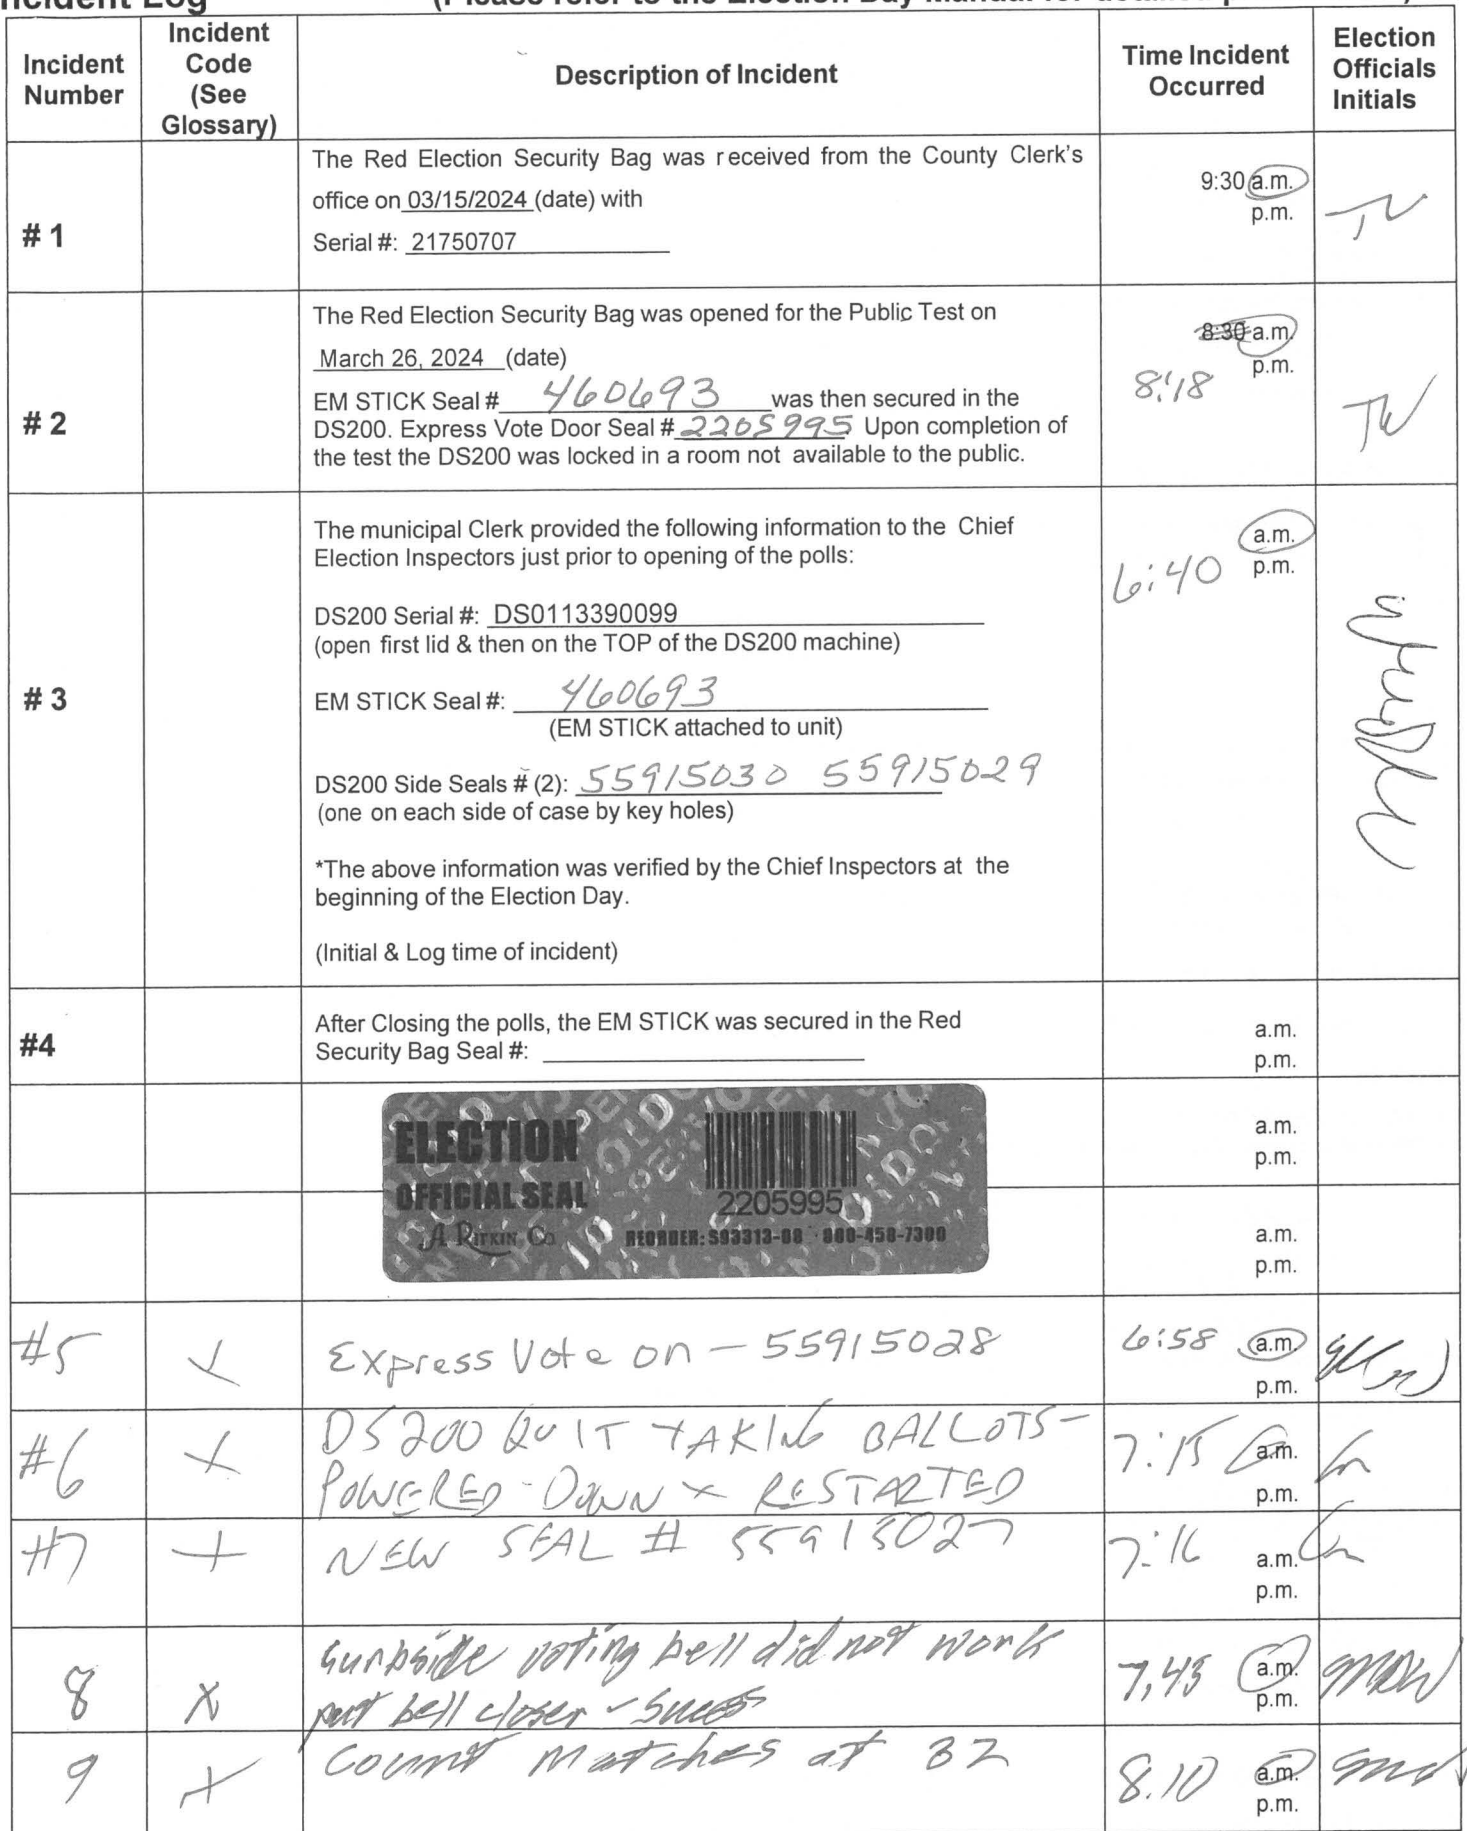 Incident Log (Please refer to the Election Day Manual for detailed
Incident Number
Incident Code (See Glossary)
Description of Incident
Time Incident Occurred
Election Officials Initials
# 1
The Red Election Security Bag was received from the County Clerk's
office on 03/15/2024 (date) with
Serial #: 21750707
9:30 a.m.
p.m.
TW
# 2
The Red Election Security Bag was opened for the Public Test on
March 26, 2024 (date)
EM STICK Seal # 460693 was then secured in the
DS200. Express Vote Door Seal # 2205995 Upon completion of
the test the DS200 was locked in a room not available to the public.
8:30 a.m.
p.m.
8:18
TW
# 3
The municipal Clerk provided the following information to the Chief
Election Inspectors just prior to opening of the polls:
DS200 Serial #: DS0113390099
(open first lid & then on the TOP of the DS200 machine)
EM STICK Seal #: 460693
(EM STICK attached to unit)
DS200 Side Seals # (2): 55915030 55915029
(one on each side of case by key holes)
*The above information was verified by the Chief Inspectors at the
beginning of the Election Day.
(Initial & Log time of incident)
a.m.
6:40 p.m.
#4
After Closing the polls, the EM STICK was secured in the Red
Security Bag Seal #:
a.m.
p.m.
ELECTION
OFFICIAL SEAL
A. Rifkin Co.
2205995
REORDER: S93313-08 · 800-458-7300
a.m.
p.m.
a.m.
p.m.
#5
Express Vote on - 55915028
6:58 a.m.
p.m.
#6
X
DS200 QUIT TAKING BALLOTS -
POWERED DOWN + RESTARTED
7:15 a.m.
p.m.
#7
NEW SEAL # 55915027
7:16 a.m.
p.m.
8
X
Curbside voting bell did not work
put bell closer - Sucess
7:43 a.m.
p.m.
9
X
Count Matches at 32
8:10 a.m.
p.m.